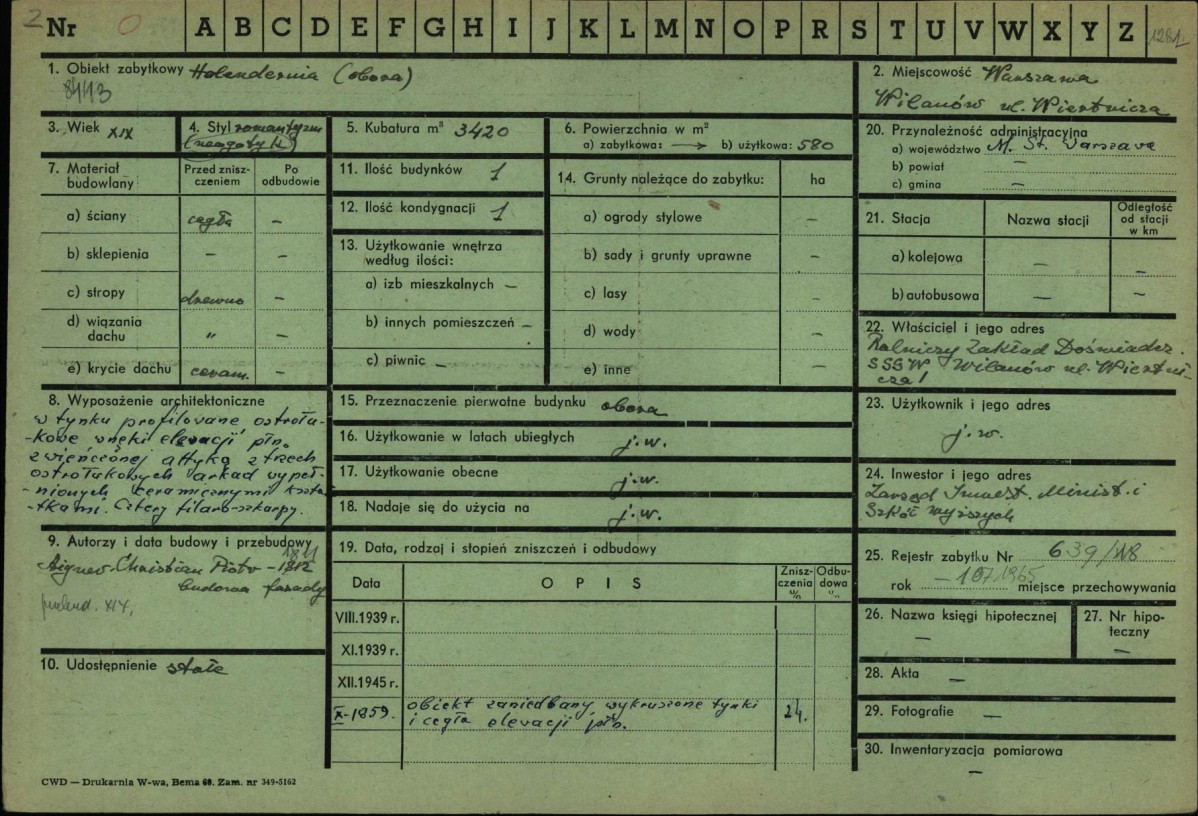 2 Nr 0 A B C D E F G H I J K L M N O P R S T U V W X Y Z
1. Obiekt zabytkowy Holendernia (obora)
2. Miejscowość Warszawa
Wilanów ul. Wiertnicza
3. Wiek XIX
4. Styl romantyzm
(neogotyk)
5. Kubatura m³ 3420
6. Powierzchnia w m²
a) zabytkowa: → b) użytkowa: 580
7. Materiał budowlany
Przed zniszczeniem
Po odbudowie
a) ściany cegła –
b) sklepienia – –
c) stropy drzewno –
d) wiązania dachu „ –
e) krycie dachu ceram. –
8. Wyposażenie architektoniczne
w tynku profilowane ostrołu-
-kowe wnęki elewacji płn.
zwieńczonej attyką z trzech
ostrołukowych arkad wypeł-
-nionych ceramicznymi kształ-
-tkami. Cztery filaro-szkarpy.
9. Autorzy i data budowy i przebudowy
Aigner Christian Piotr – 1812
budowa fasady
10. Udostępnienie stałe
11. Ilość budynków 1
12. Ilość kondygnacji 1
13. Użytkowanie wnętrza
według ilości:
a) izb mieszkalnych –
b) innych pomieszczeń –
c) piwnic –
14. Grunty należące do zabytku: ha
a) ogrody stylowe –
b) sady i grunty uprawne –
c) lasy –
d) wody –
e) inne –
15. Przeznaczenie pierwotne budynku obora
16. Użytkowanie w latach ubiegłych j.w.
17. Użytkowanie obecne j.w.
18. Nadaje się do użycia na j.w.
19. Data, rodzaj i stopień zniszczeń i odbudowy
Data OPIS Zniszczenia % Odbudowa %
VIII.1939 r.
XI.1939 r.
XII.1945 r.
X-1959. obiekt zaniedbany, wykruszone tynki
i cegła elewacji płn. 24.
20. Przynależność administracyjna
a) województwo M. St. Warszawa
b) powiat –
c) gmina –
21. Stacja Nazwa stacji Odległość od stacji w km
a) kolejowa – –
b) autobusowa – –
22. Właściciel i jego adres
Rolniczy Zakład Doświadcz.
SGGW Wilanów ul. Wiertni-
cza 1
23. Użytkownik i jego adres
j.w.
24. Inwestor i jego adres
Zarząd Inwest. Minist.
Szkół Wyższych
25. Rejestr zabytku Nr 639/
rok 1965 miejsce przechowywania
26. Nazwa księgi hipotecznej
–
27. Nr hipoteczny
–
28. Akta –
29. Fotografie –
30. Inwentaryzacja pomiarowa
–
CWD — Drukarnia W-wa, Bema 60. Zam. nr 349-5162